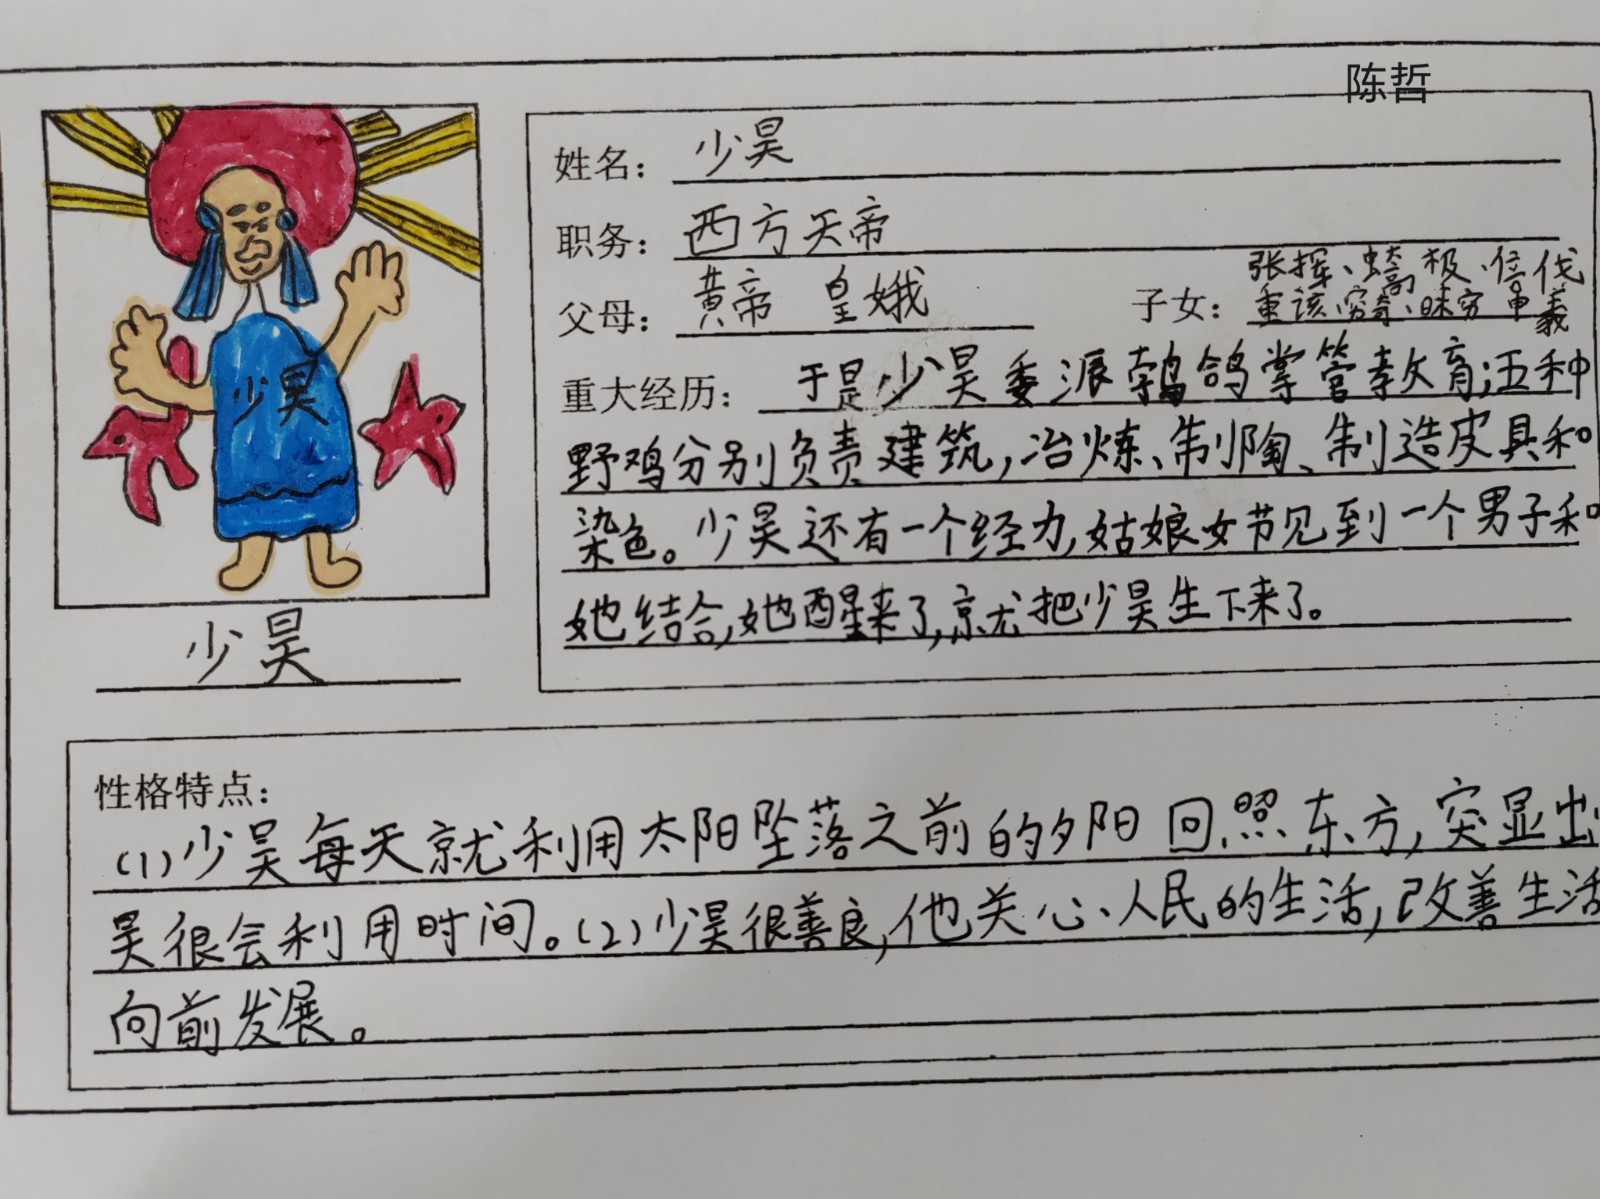 陈哲
姓名：少昊
职务：西方天帝
父母：黄帝 皇娥
子女：张挥、蟜极、倍伐
重、该、穷奇、昧、穷申、羲
重大经历：于是少昊委派鹁鸽掌管教育；五种
野鸡分别负责建筑，冶炼、制陶、制造皮具和
染色。少昊还有一个经力，姑娘女节见到一个男子和
她结合，她酉星来了，京尤把少昊生下来了。
少昊
少昊
性格特点：
（1）少昊每天就利用太阳坠落之前的夕阳回照东方，突显出
昊很会利用时间。（2）少昊很善良，他关心人民的生活，改善生活
向前发展。